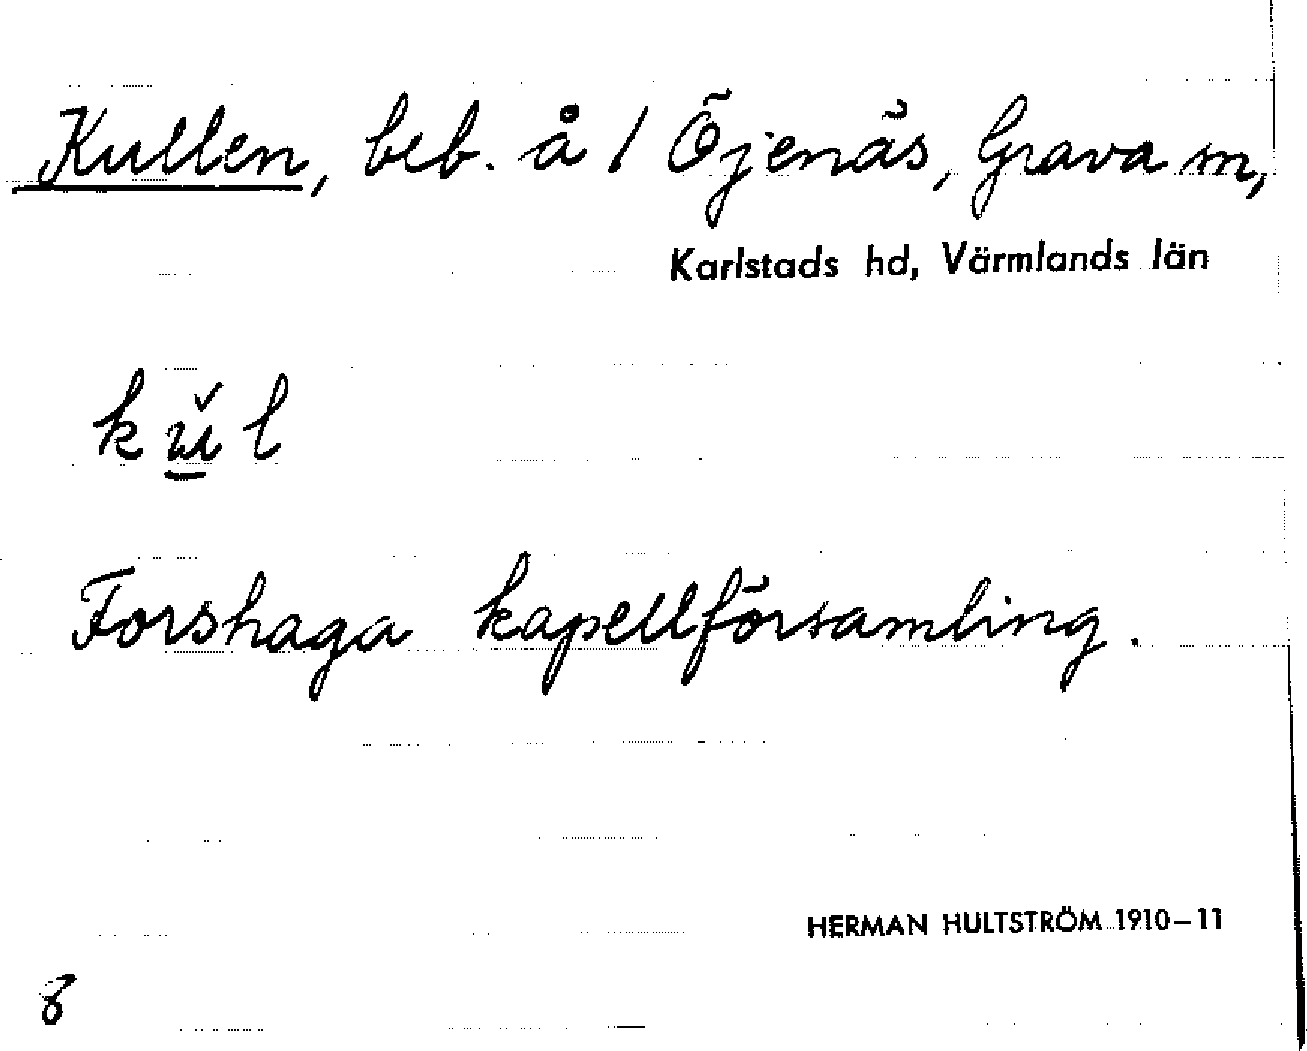 Kullen, beb. å 1 Öjenäs, Grava sn,
Karlstads hd, Värmlands län
kŭl
Forshaga kapellförsamling.
HERMAN HULTSTRÖM 1910–11
8